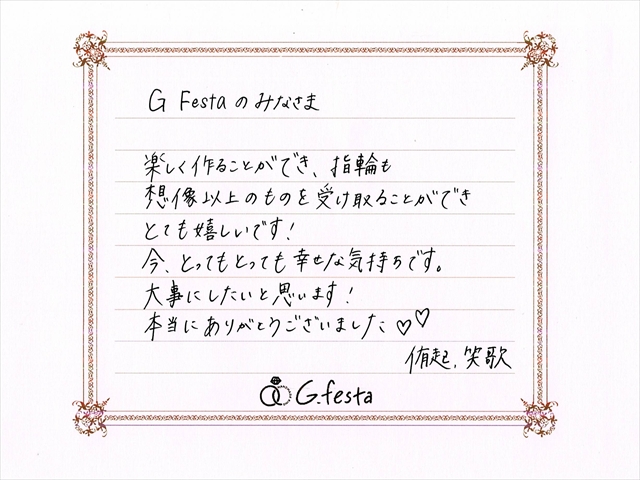 G Festaのみなさま
楽しく作ることができ、指輪も
想像以上のものを受け取ることができ
とても嬉しいです!
今、とってもとっても幸せな気持ちです。
大事にしたいと思います!
本当にありがとうございました♡♡
侑起、笑歌
G.festa